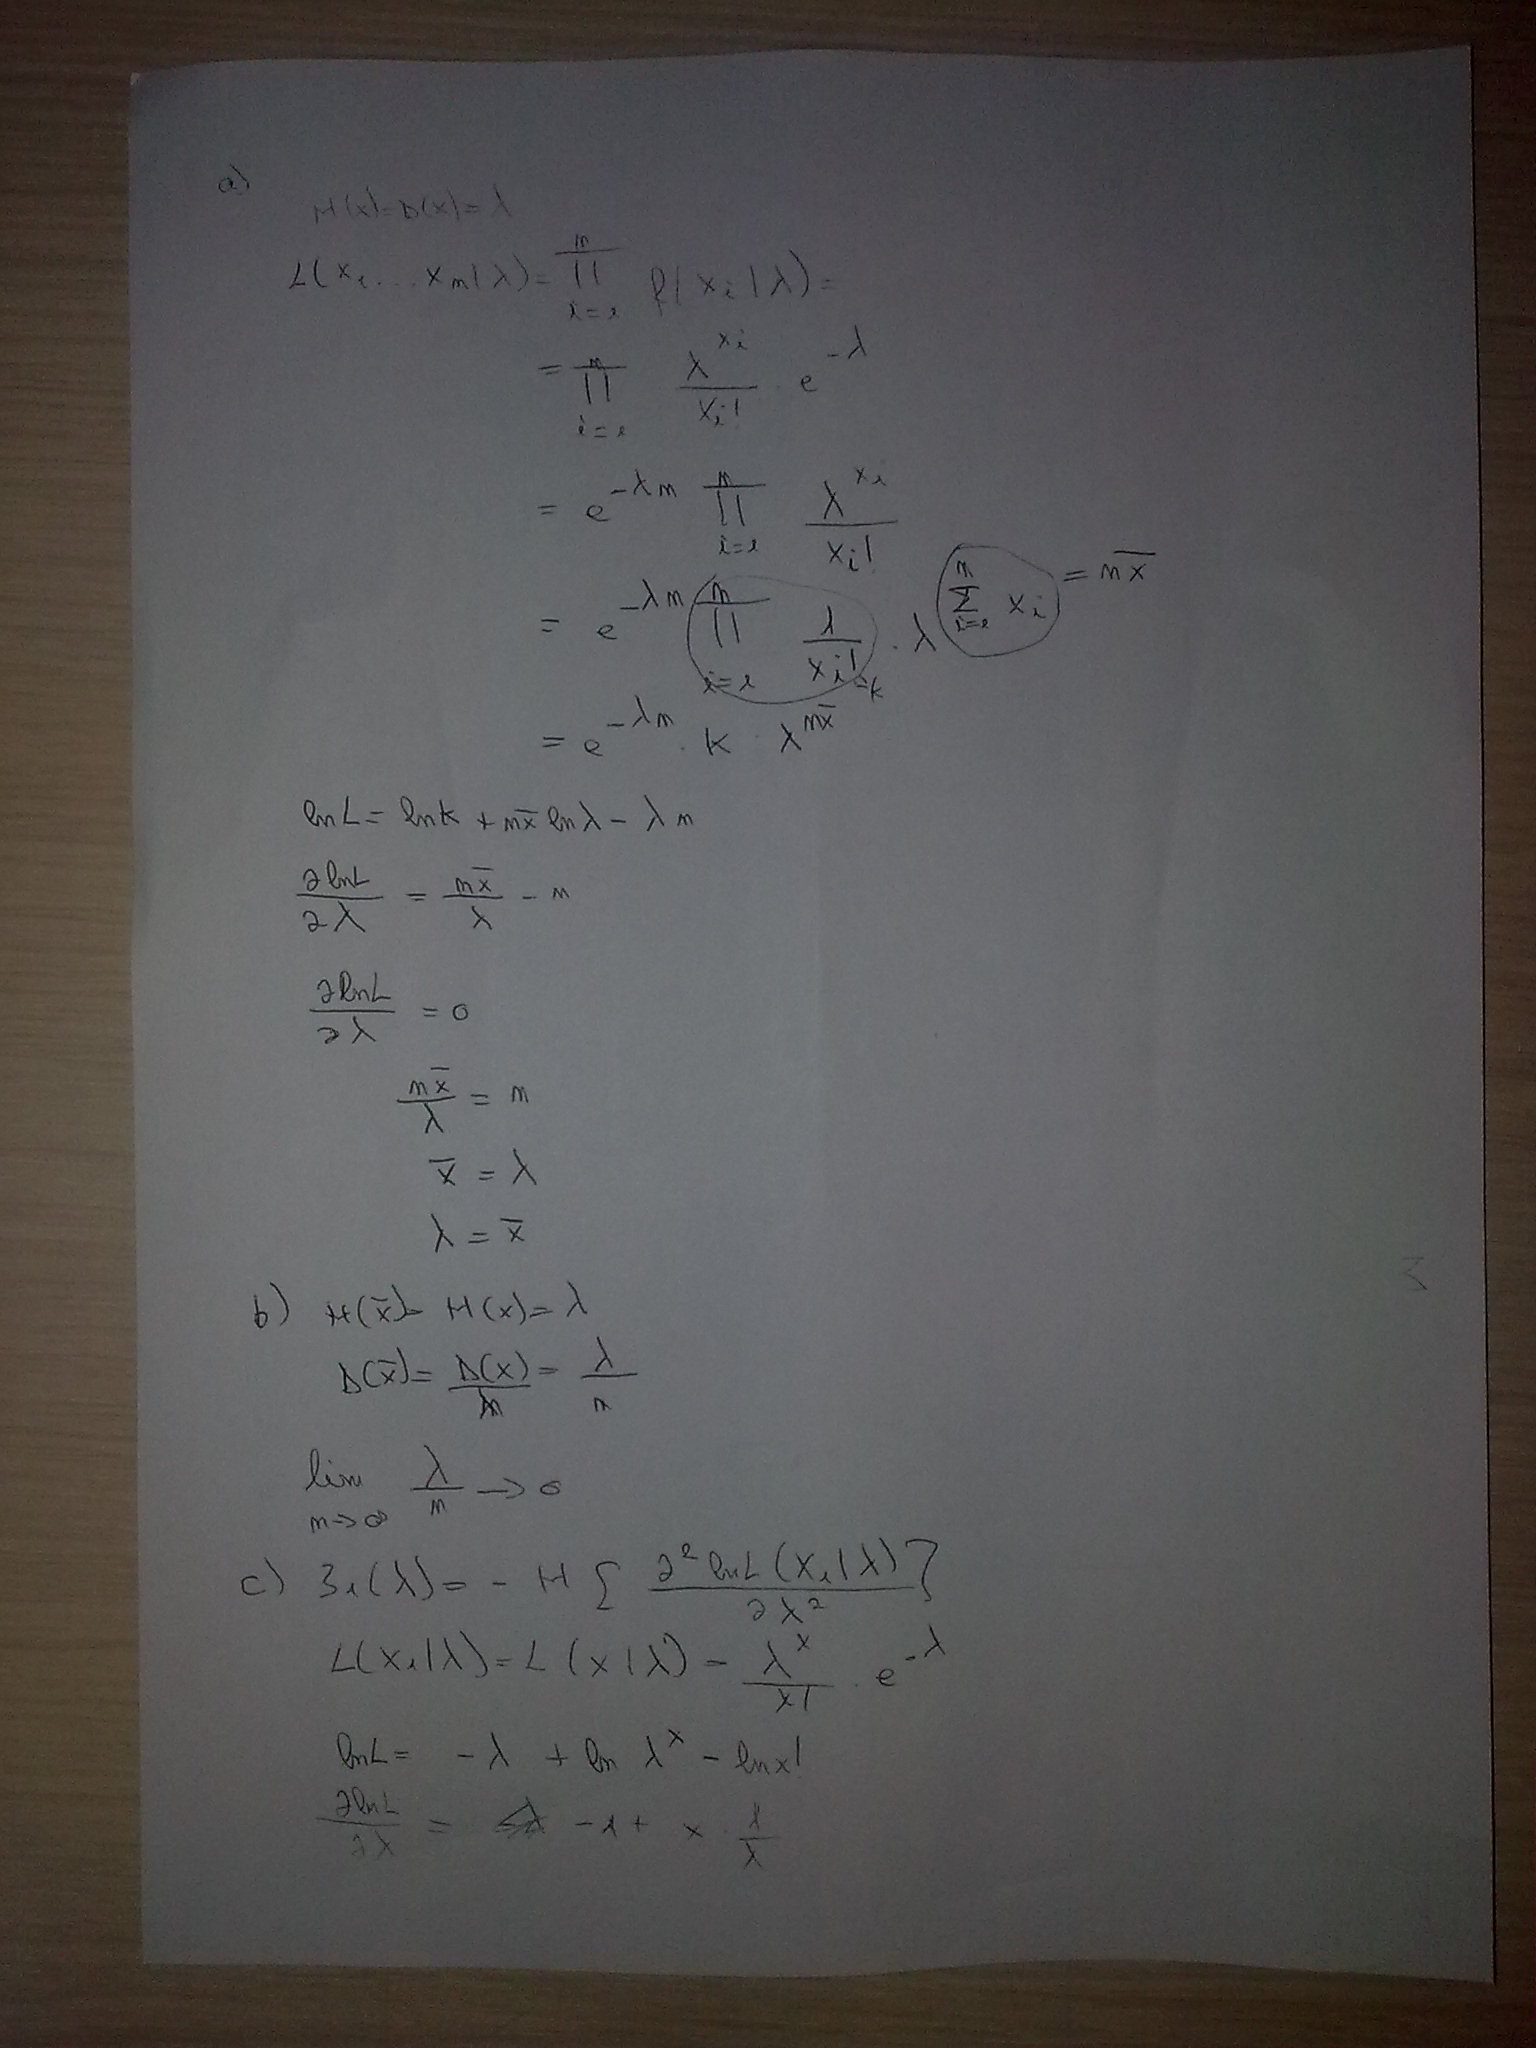 a)
M(x)=D(x)=λ
L(x₁...xₙ|λ)=∏ⁿᵢ₌₁ f(xᵢ|λ)=
=∏ⁿᵢ₌₁ λ^(xᵢ)/xᵢ! · e^(-λ)
= e^(-λn) ∏ⁿᵢ₌₁ λ^(xᵢ)/xᵢ!
= e^(-λn) ∏ⁿᵢ₌₁ 1/xᵢ! =k · λ^(∑ⁿᵢ₌₁ xᵢ) = nx̄
= e^(-λn) · k · λ^(nx̄)
lnL= lnk + nx̄ lnλ - λn
∂lnL/∂λ = nx̄/λ - n
∂lnL/∂λ = 0
nx̄/λ = n
x̄ = λ
λ = x̄
b) M(x̄)= M(x)= λ
D(x̄)= D(x)/n = λ/n
lim n→∞ λ/n → 0
c) I₁(λ)= - M { ∂²lnL(x₁|λ)/∂λ² }
L(x₁|λ)=L(x|λ)= λ^x/x! · e^(-λ)
lnL= -λ + ln λ^x - lnx!
∂lnL/∂λ = -1+ x · 1/λ